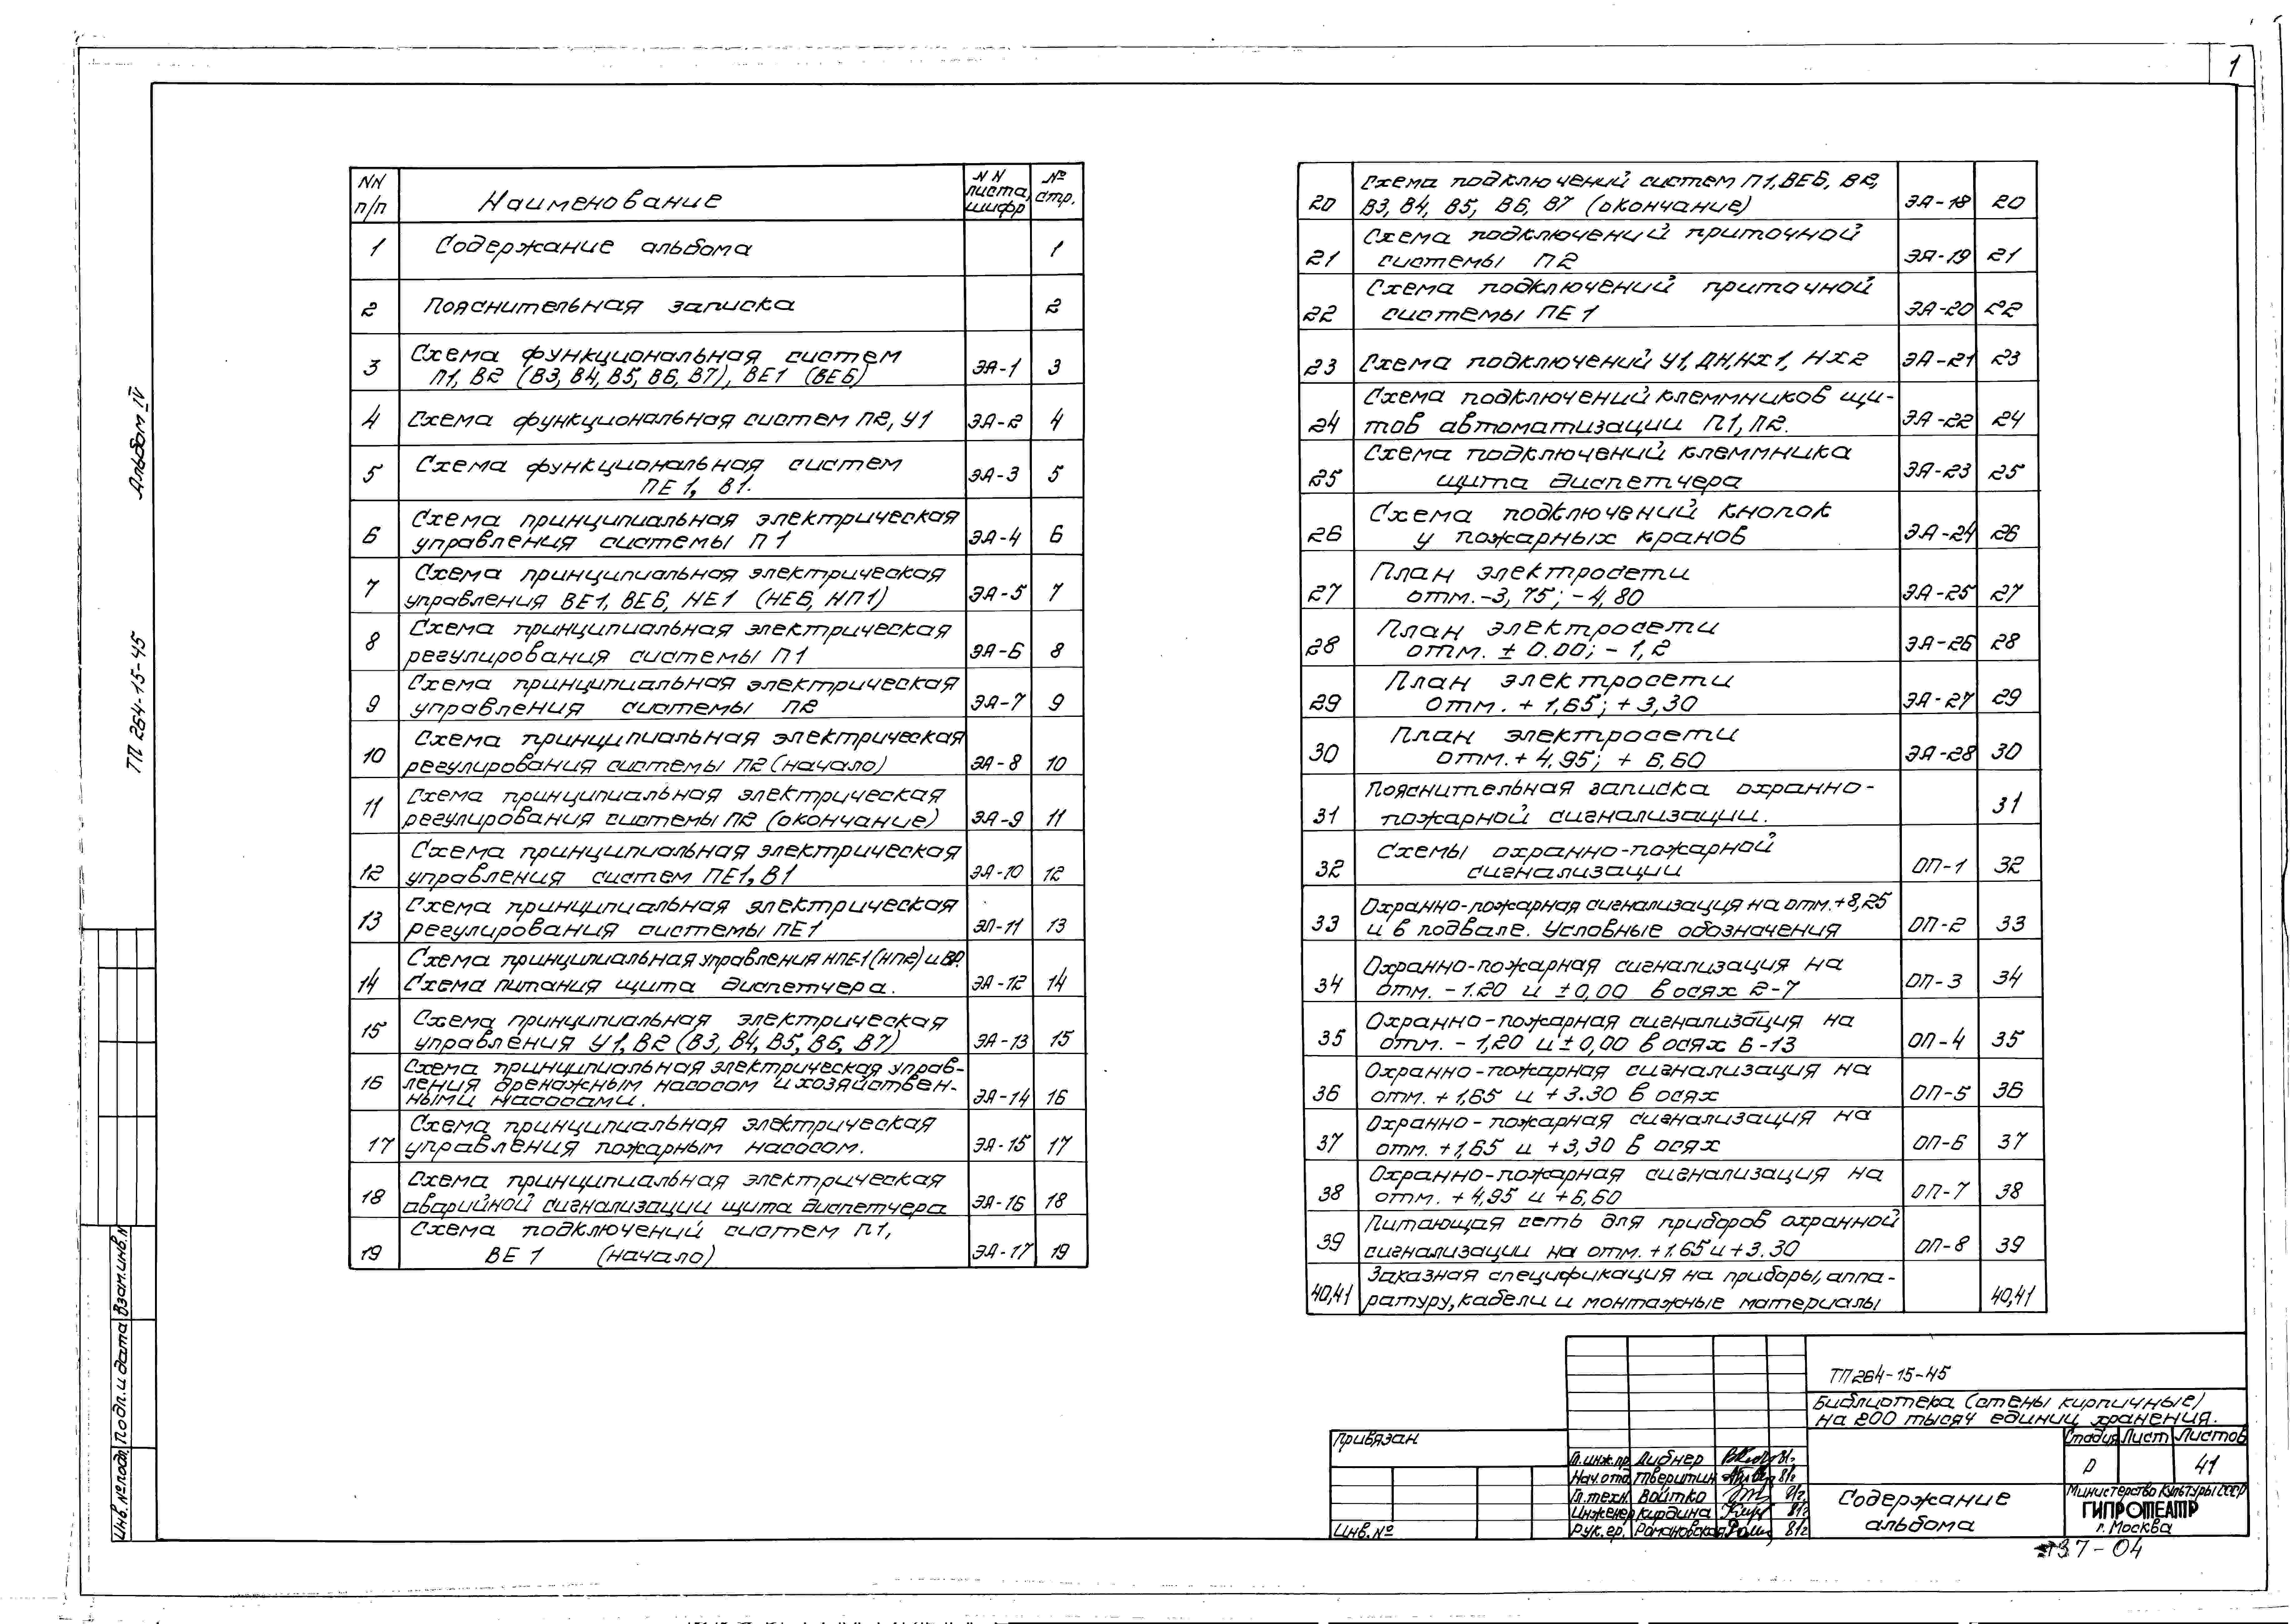 1
Альбом IV
ТП 264-15-45
NN п/п
Наименование
NN листа, шифр
№ стр.
1 Содержание альбома 1
2 Пояснительная записка 2
3 Схема функциональная систем
П1, В2 (В3, В4, В5, В6, В7), ВЕ1 (ВЕ6) ЭА-1 3
4 Схема функциональная систем П2, У1 ЭА-2 4
5 Схема функциональная систем
ПЕ1, В1. ЭА-3 5
6 Схема принципиальная электрическая
управления системы П1 ЭА-4 6
7 Схема принципиальная электрическая
управления ВЕ1, ВЕ6, НЕ1 (НЕ6, НП1) ЭА-5 7
8 Схема принципиальная электрическая
регулирования системы П1 ЭА-6 8
9 Схема принципиальная электрическая
управления системы П2 ЭА-7 9
10 Схема принципиальная электрическая
регулирования системы П2 (начало) ЭА-8 10
11 Схема принципиальная электрическая
регулирования системы П2 (окончание) ЭА-9 11
12 Схема принципиальная электрическая
управления систем ПЕ1, В1 ЭА-10 12
13 Схема принципиальная электрическая
регулирования системы ПЕ1 ЭП-11 13
14 Схема принципиальная управления НПЕ-1 (НП2) и ВР.
Схема питания щита диспетчера. ЭА-12 14
15 Схема принципиальная электрическая
управления У1, В2 (В3, В4, В5, В6, В7) ЭА-13 15
16 Схема принципиальная электрическая управ-
ления дренажным насосом и хозяйствен-
ными насосами. ЭА-14 16
17 Схема принципиальная электрическая
управления пожарным насосом. ЭА-15 17
18 Схема принципиальная электрическая
аварийной сигнализации щита диспетчера ЭА-16 18
19 Схема подключений систем П1,
ВЕ1 (начало) ЭА-17 19
20 Схема подключений систем П1, ВЕ6, В2,
В3, В4, В5, В6, В7 (окончание) ЭА-18 20
21 Схема подключений приточной
системы П2 ЭА-19 21
22 Схема подключений приточной
системы ПЕ1 ЭА-20 22
23 Схема подключений У1, ДН, НХ1, НХ2 ЭА-21 23
24 Схема подключений клеммников щи-
тов автоматизации П1, П2. ЭА-22 24
25 Схема подключений клеммника
щита диспетчера ЭА-23 25
26 Схема подключений кнопок
у пожарных кранов ЭА-24 26
27 План электросети
отм.-3,75; -4,80 ЭА-25 27
28 План электросети
отм. ± 0.00; -1,2 ЭА-26 28
29 План электросети
отм. +1,65; +3,30 ЭА-27 29
30 План электросети
отм. +4,95; +6,60 ЭА-28 30
31 Пояснительная записка охранно-
пожарной сигнализации. 31
32 Схемы охранно-пожарной
сигнализации ОП-1 32
33 Охранно-пожарная сигнализация на отм.+8,25
и в подвале. Условные обозначения ОП-2 33
34 Охранно-пожарная сигнализация на
отм. -1.20 и ±0,00 в осях 2-7 ОП-3 34
35 Охранно-пожарная сигнализация на
отм. -1,20 и ±0,00 в осях 6-13 ОП-4 35
36 Охранно-пожарная сигнализация на
отм. +1,65 и +3.30 в осях ОП-5 36
37 Охранно-пожарная сигнализация на
отм. +1,65 и +3,30 в осях ОП-6 37
38 Охранно-пожарная сигнализация на
отм. +4,95 и +6,60 ОП-7 38
39 Питающая сеть для приборов охранной
сигнализации на отм. +1.65 и +3.30 ОП-8 39
40,41 Заказная спецификация на приборы, аппа-
ратуру, кабели и монтажные материалы 40,41
ТП 264-15-45
Библиотека (стены кирпичные)
на 200 тысяч единиц хранения.
Стадия Лист Листов
Р 41
Привязан
Инв.№
Гл.инж.пр. Диднер 81г
Нач.отд. Тверитин 81г
Гл.техн. Войтко 81г
Инженер Кирдина 81г
Рук.гр. Романовская 81г
Содержание
альбома
Министерство Культуры СССР
ГИПРОТЕАТР
г. Москва
37-04
Взам.инв.№
Подп. и дата
Инв.№подл.